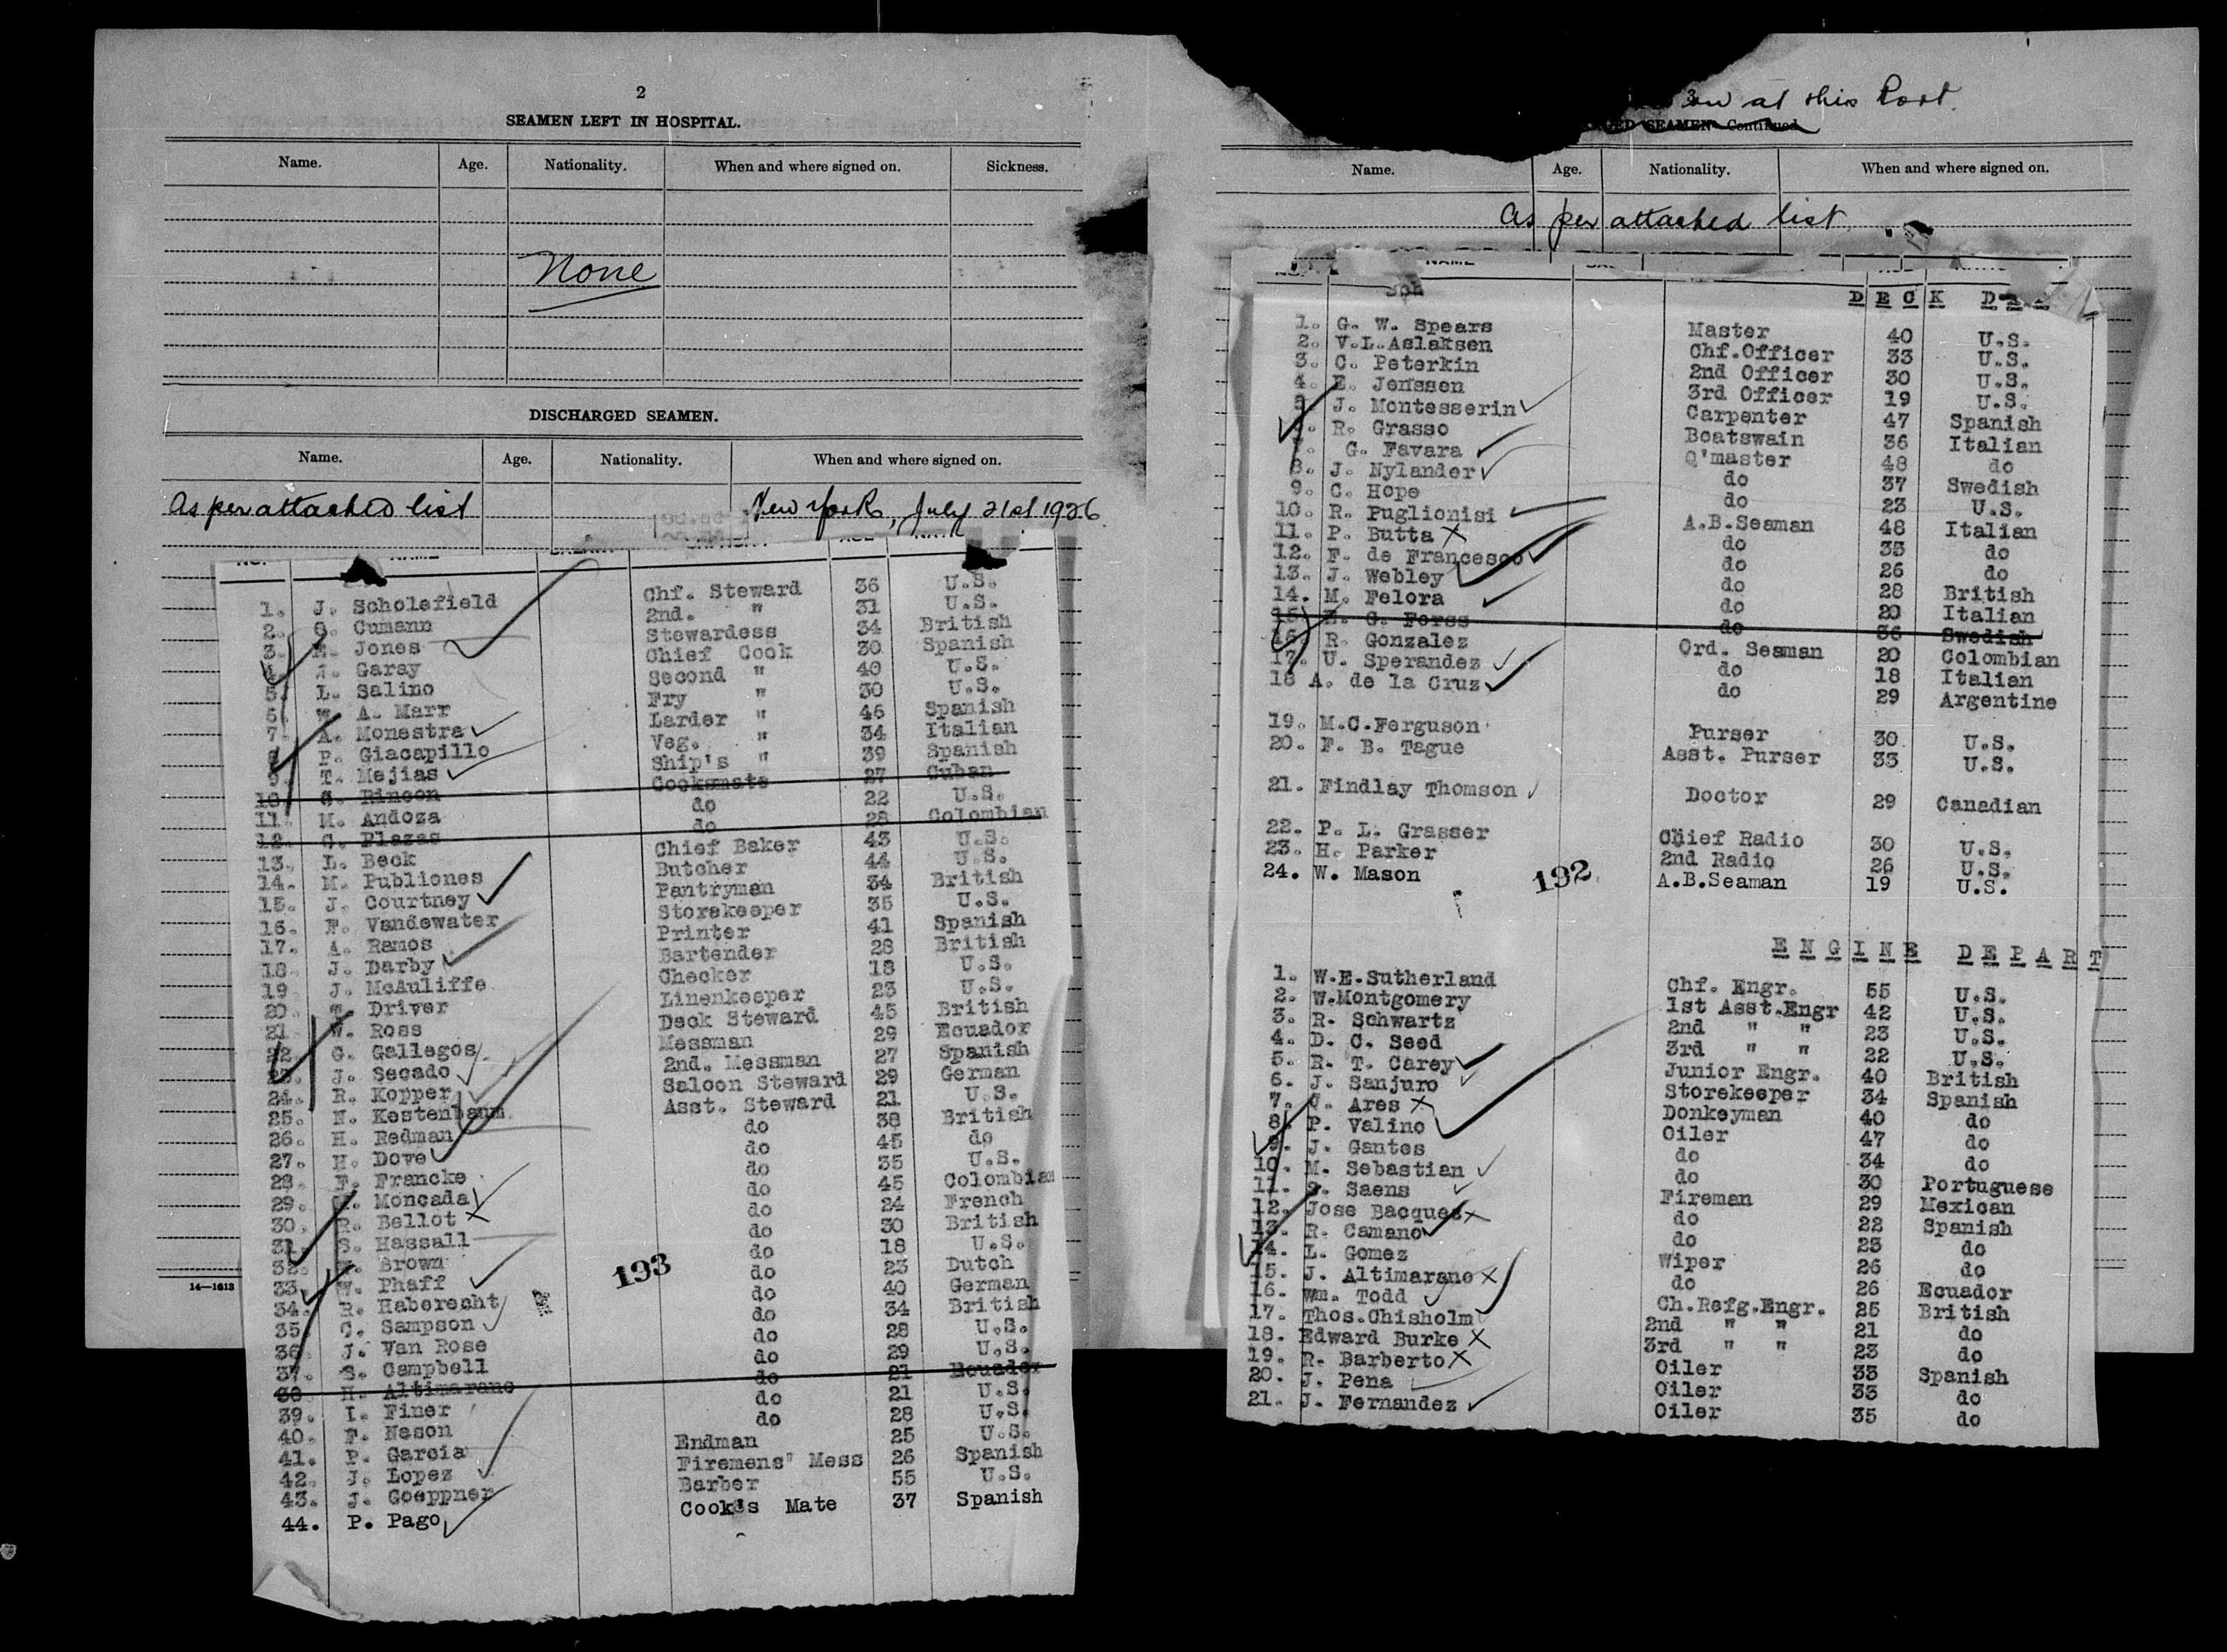 2
SEAMEN LEFT IN HOSPITAL.
Name. Age. Nationality. When and where signed on. Sickness.
None
DISCHARGED SEAMEN.
Name. Age. Nationality. When and where signed on.
As per attached list New York, July 21st 1926
NO. NAME
1. J. Scholefield Chf. Steward 36 U.S.
2. Cumann 2nd. " 31 U.S.
3. Jones Stewardess 34 British
4. Garay Chief Cook 30 Spanish
5. L. Salino Second " 40 U.S.
6. W. A. Marr Fry " 30 U.S.
7. A. Monestra Larder " 46 Spanish
8. P. Giacapillo Veg. " 34 Italian
9. T. Mejias Ship's " 39 Spanish
10. Rincon Cooksmate 27 Cuban
11. M. Andoza do 22 U.S.
12. G. Plazas do 28 Colombian
13. L. Beck Chief Baker 43 U.S.
14. M. Publiones Butcher 44 U.S.
15. J. Courtney Pantryman 34 British
16. F. Vandewater Storekeeper 35 U.S.
17. A. Ramos Printer 41 Spanish
18. J. Darby Bartender 28 British
19. J. McAuliffe Checker 18 U.S.
20. T. Driver Linenkeeper 23 U.S.
21. W. Ross Deck Steward 45 British
22. G. Gallegos Messman 29 Ecuador
23. J. Secado 2nd. Messman 27 Spanish
24. R. Kopper Saloon Steward 29 German
25. N. Kestenbaum Asst. Steward 21 U.S.
26. H. Redman do 38 British
27. H. Dove do 45 do
28. F. Francke do 35 U.S.
29. Moncada do 45 Colombian
30. R. Bellot do 24 French
31. S. Hassall do 30 British
32. Brown do 18 U.S.
33. W. Phaff do 23 Dutch
34. R. Haberecht do 40 German
35. C. Sampson do 34 British
36. J. Van Rose do 28 U.S.
37. S. Campbell do 29 U.S.
38 H. Altimarano do 21 Ecuador
39. I. Finer do 21 U.S.
40. F. Nason do 28 U.S.
41. P. Garcia Endman 25 U.S.
42. J. Lopez Firemens' Mess 26 Spanish
43. J. Goeppner Barber 55 U.S.
44. P. Pago Cook's Mate 37 Spanish
193
14—1613
3
at this Port.
SEAMEN Continued
Name. Age. Nationality. When and where signed on.
As per attached list
NAME
DECK
1. G. W. Spears Master 40 U.S.
2. V.L.Aslaksen Chf.Officer 33 U.S.
3. C. Peterkin 2nd Officer 30 U.S.
4. E. Jenssen 3rd Officer 19 U.S.
5. J. Montesserin Carpenter 47 Spanish
6. R. Grasso Boatswain 36 Italian
7. G. Favara Q'master 48 do
8. J. Nylander do 37 Swedish
9. C. Hope do 23 U.S.
10. R. Puglionisi A.B.Seaman 48 Italian
11. P. Butta do 35 do
12. F. de Francesco do 26 do
13. J. Webley do 28 British
14. M. Felora do 29 Italian
15. G. Forss do 36 Swedish
16. R. Gonzalez Ord. Seaman 20 Colombian
17. U. Sperandez do 18 Italian
18 A. de la Cruz do 29 Argentine
19. M.C.Ferguson Purser 30 U.S.
20. F. B. Tague Asst. Purser 33 U.S.
21. Findlay Thomson Doctor 29 Canadian
22. P. L. Grasser Chief Radio 30 U.S.
23. H. Parker 2nd Radio 26 U.S.
24. W. Mason A.B.Seaman 19 U.S.
192
ENGINE DEPART
1. W.E.Sutherland Chf. Engr. 55 U.S.
2. W.Montgomery 1st Asst.Engr 42 U.S.
3. R. Schwartz 2nd " " 23 U.S.
4. D. C. Seed 3rd " " 22 U.S.
5. R. T. Carey Junior Engr. 40 British
6. J. Sanjuro Storekeeper 34 Spanish
7. C. Ares Donkeyman 40 do
8. P. Valino Oiler 47 do
9. J. Gantes do 34 do
10. M. Sebastian do 30 Portuguese
11. Saens Fireman 29 Mexican
12. Jose Bacques do 22 Spanish
13. R. Camano do 23 do
14. L. Gomez Wiper 26 do
15. J. Altimarano do 26 Ecuador
16. Wm. Todd Ch.Refg.Engr. 25 British
17. Thos.Chisholm 2nd " " 21 do
18. Edward Burke 3rd " " 23 do
19. R. Barberto Oiler 33 Spanish
20. J. Pena Oiler 33 do
21. J. Fernandez Oiler 35 do